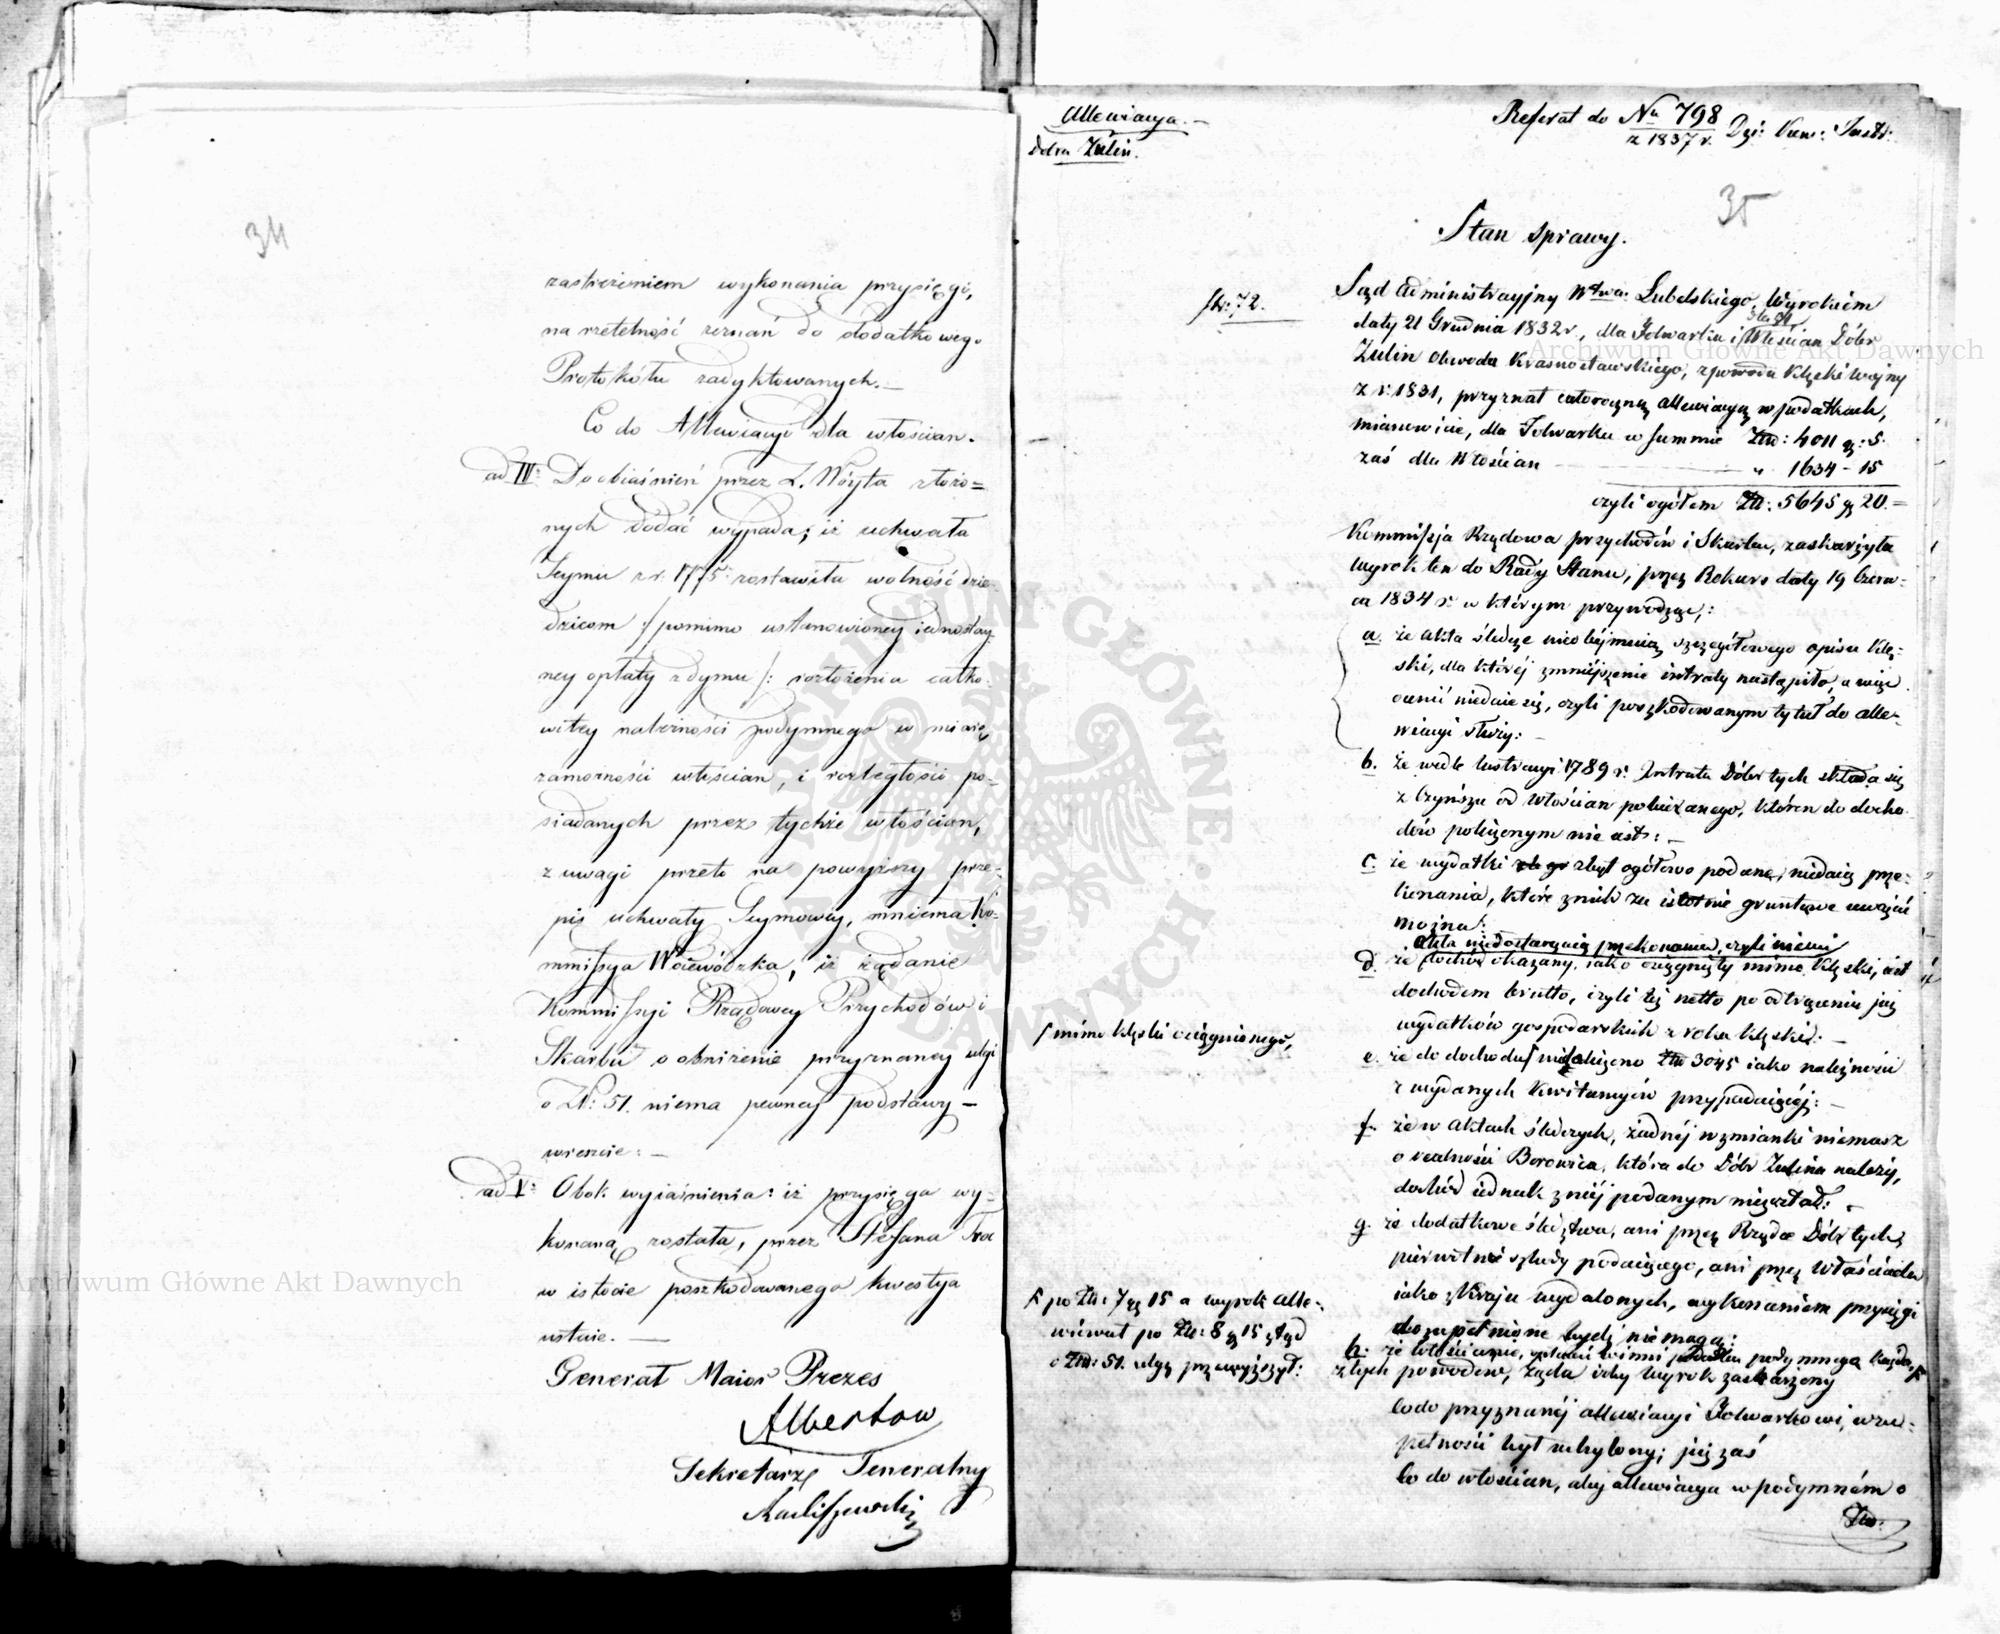 34
zastrzeżeniem wykonania przysięgi,
na rzetelność zeznań do dodatkowego
Protokółu zadyktowanych. —
Co do Allewiacyi dla włościan.
ad IV: Do obiaśnień przez Z. Wóyta złożo=
nych dodać wypada; iż uchwała
Seymu z r. 1775 zostawiła wolność dzie-
dzicom /: pomimo ustanowioney iednostay-
ney opłaty z dymu :/ rozłożenia całko-
witey należności podymnego w miarę
zamożności włościan, i rozległości po-
siadanych przez tychże włościan,
z uwagi przeto na powyższy prze-
pis uchwały Seymowey, mniema Ko-
mmissya Woiewódzka, iż żądanie
Kommissyi Rządowey Przychodów i
Skarbu o obniżenie przyznaney ulgi
o Zł: 51. niema pewney podstawy —
wreszcie: —
ad V: Obok wyiaśnienia: iż przysięga wy-
konaną została, przez Stefana
w istocie poszkodowanego kwestya
ustaie. —
Generał Maior Prezes
Albertow
Sekretarz Jeneralny
Allewiacya. —
Dobra Żulin.
Referat do Nru 798 z 1837 r. Dzi: Kom: Inst:
35
Stan sprawy.
str: 72.
Sąd Administracyjny Wtwa: Lubelskiego, Wyrokiem
daty 21 Grudnia 1832 r, dla Folwarku i Włościan Dóbr
Żulin Obwodu Krasnostawskiego, z powodu klęski wojny
z r: 1831, przyznał całoroczną allewiacyą w podatkach,
mianowicie, dla Folwarku w summie Złp: 4011 gr: 5.
zaś dla Włościan — „ 1634 – 15
czyli ogółem Zł: 5645 gr 20. =
Kommissja Rządowa przychodów i Skarbu, zaskarżyła
wyrok ten do Rady Stanu, przez Rekurs daty 19 Czerw-
ca 1834 r: w którym przywodząc,:
a. że akta śledcze nieobejmuią szczegółowego opisu klę-
ski, dla której zmniejszenie intraty nastąpiło, a więc
ocenić niedaie się, czyli poszkodowanym tytuł do alle-
wiacyi służy: —
b. że wedle lustracyi 1789 r: Intrata Dóbr tych składa się
z Czynszu od Włościan pobieranego, któren do docho-
dów policzonym nie iest: —
c. że wydatki zbyt ogółowo podane, niedaią prze-
konania, które z nich za istotnie gruntowe uważać
można:
akta niedostarczaią przekonania, czyli niemi
d. że dochód okazany, iako osiągnięty mimo klęski, iest
dochodem brutto, czyli też netto po odtrąceniu już
wydatków gospodarskich z roku klęski: —
ſ mimo klęski osiągnionego,
e. że do dochodu ſ niepoliczono Złp 3045 iako należności
z wydanych kwitancyów przypadaiącéj: —
f. że w aktach śledczych, żadnéj wzmianki niemasz
o realności Borowica, która do Dóbr Żulina należy,
dochód iednak z niéj podanym niezostał: —
g. że dodatkowe śledztwa, ani przez Rządcę Dóbr tych,
pierwotnie szkody podaiącego, ani przez Właściciela
iako z Kraju wydalonych, wykonaniem przysięgi
dozupełnione bydź niemogą:
h: że Włościanie, winni podymnego każdo
po Złp: 7 gr 15 a wyrok alle-
wiował po Złp: 8 gr 15 ztąd
o Złp: 51. ulgę przewyższył:
z tych powodów, żąda iżby Wyrok zaskarżony
co do przyznanéj allewiacyi Folwarkowi, w zu-
pełności był uchylony; już zaś
Co do włościan, aby allewiacya w podymném o
Złp:
Archiwum Główne Akt Dawnych
Archiwum Główne Akt Dawnych
ARCHIWUM GŁÓWNE AKT DAWNYCH